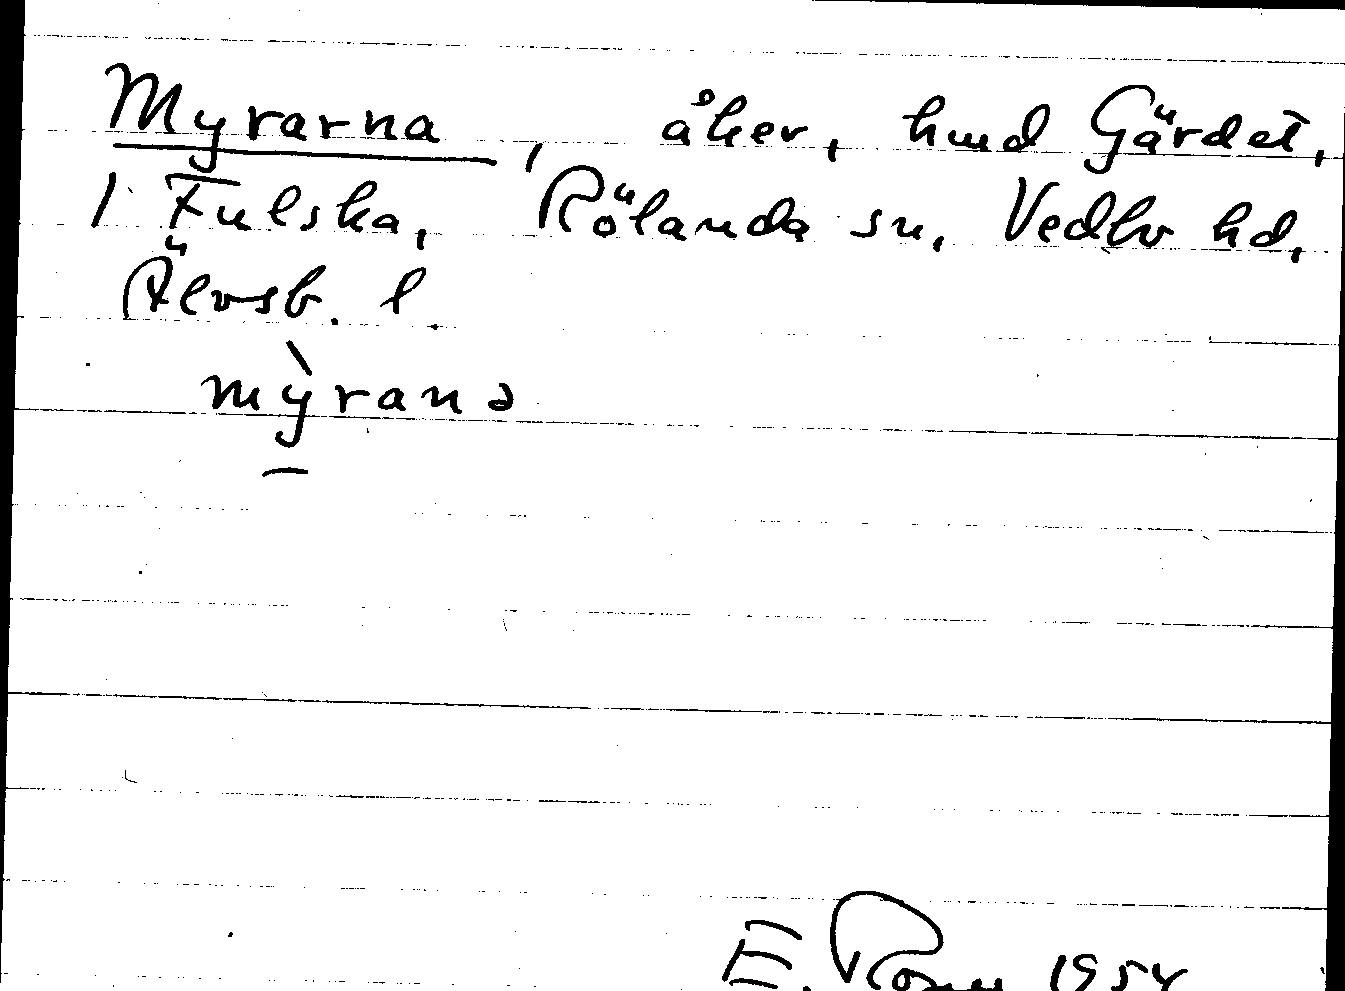 Myrarna, åker, hmd Gärdet,
1 Fulska, Rölanda sn, Vedbo hd,
Älvsb. l.
mỳranə
E. Rosen 1954